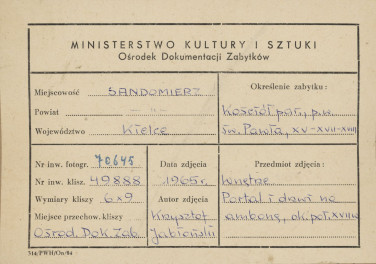 MINISTERSTWO KULTURY I SZTUKI
Ośrodek Dokumentacji Zabytków
Miejscowość SANDOMIERZ
Powiat —
Województwo Kielce
Określenie zabytku :
Kościół par., p.w.
św. Pawła, XV-XVII-XVIII
Nr inw. fotogr. 70645
Nr inw. klisz. 49888
Wymiary kliszy 6x9
Miejsce przechow. kliszy
Ośrod. Dok. Zab.
Data zdjęcia
1965 r.
Autor zdjęcia
Krzysztof
Jabłoński
Przedmiot zdjęcia :
Wnętrze
Portal i drzwi na
ambonę, ok. poł. XVIII w